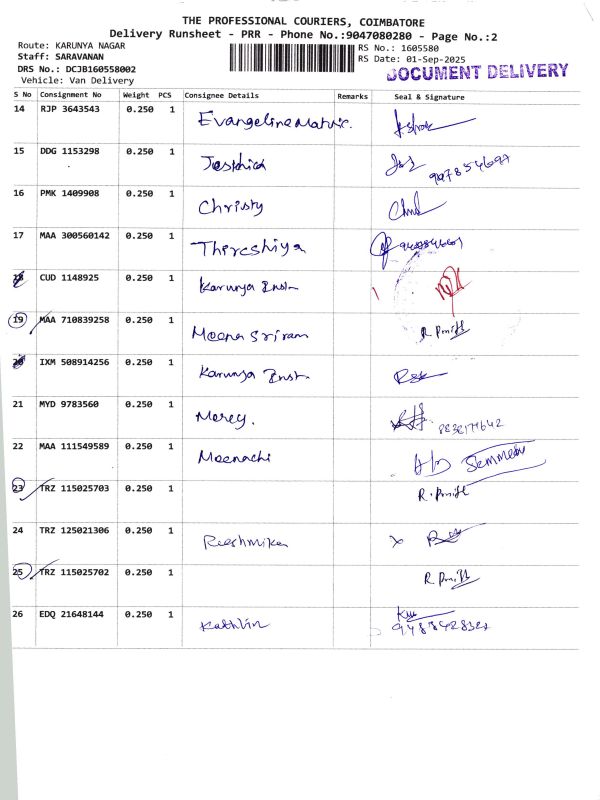 THE PROFESSIONAL COURIERS, COIMBATORE
Delivery Runsheet - PRR - Phone No.:9047080280 - Page No.:2
Route: KARUNYA NAGAR RS No.: 1605580
Staff: SARAVANAN RS Date: 01-Sep-2025
DRS No.: DCJB160558002 DOCUMENT DELIVERY
Vehicle: Van Delivery
S No Consignment No Weight PCS Consignee Details Remarks Seal & Signature
14 RJP 3643543 0.250 1 Evangeline
15 DDG 1153298 0.250 1
16 PMK 1409908 0.250 1 Christy
17 MAA 300560142 0.250 1 Thireshiya
18 CUD 1148925 0.250 1 Karunya Inst
19 MAA 710839258 0.250 1 Meena Sriram
20 IXM 508914256 0.250 1 Karunya Inst
21 MYD 9783560 0.250 1 Mercy.
22 MAA 111549589 0.250 1 Meenachi
23 TRZ 115025703 0.250 1
24 TRZ 125021306 0.250 1 Reeshmika
25 TRZ 115025702 0.250 1
26 EDQ 21648144 0.250 1 Kathlin